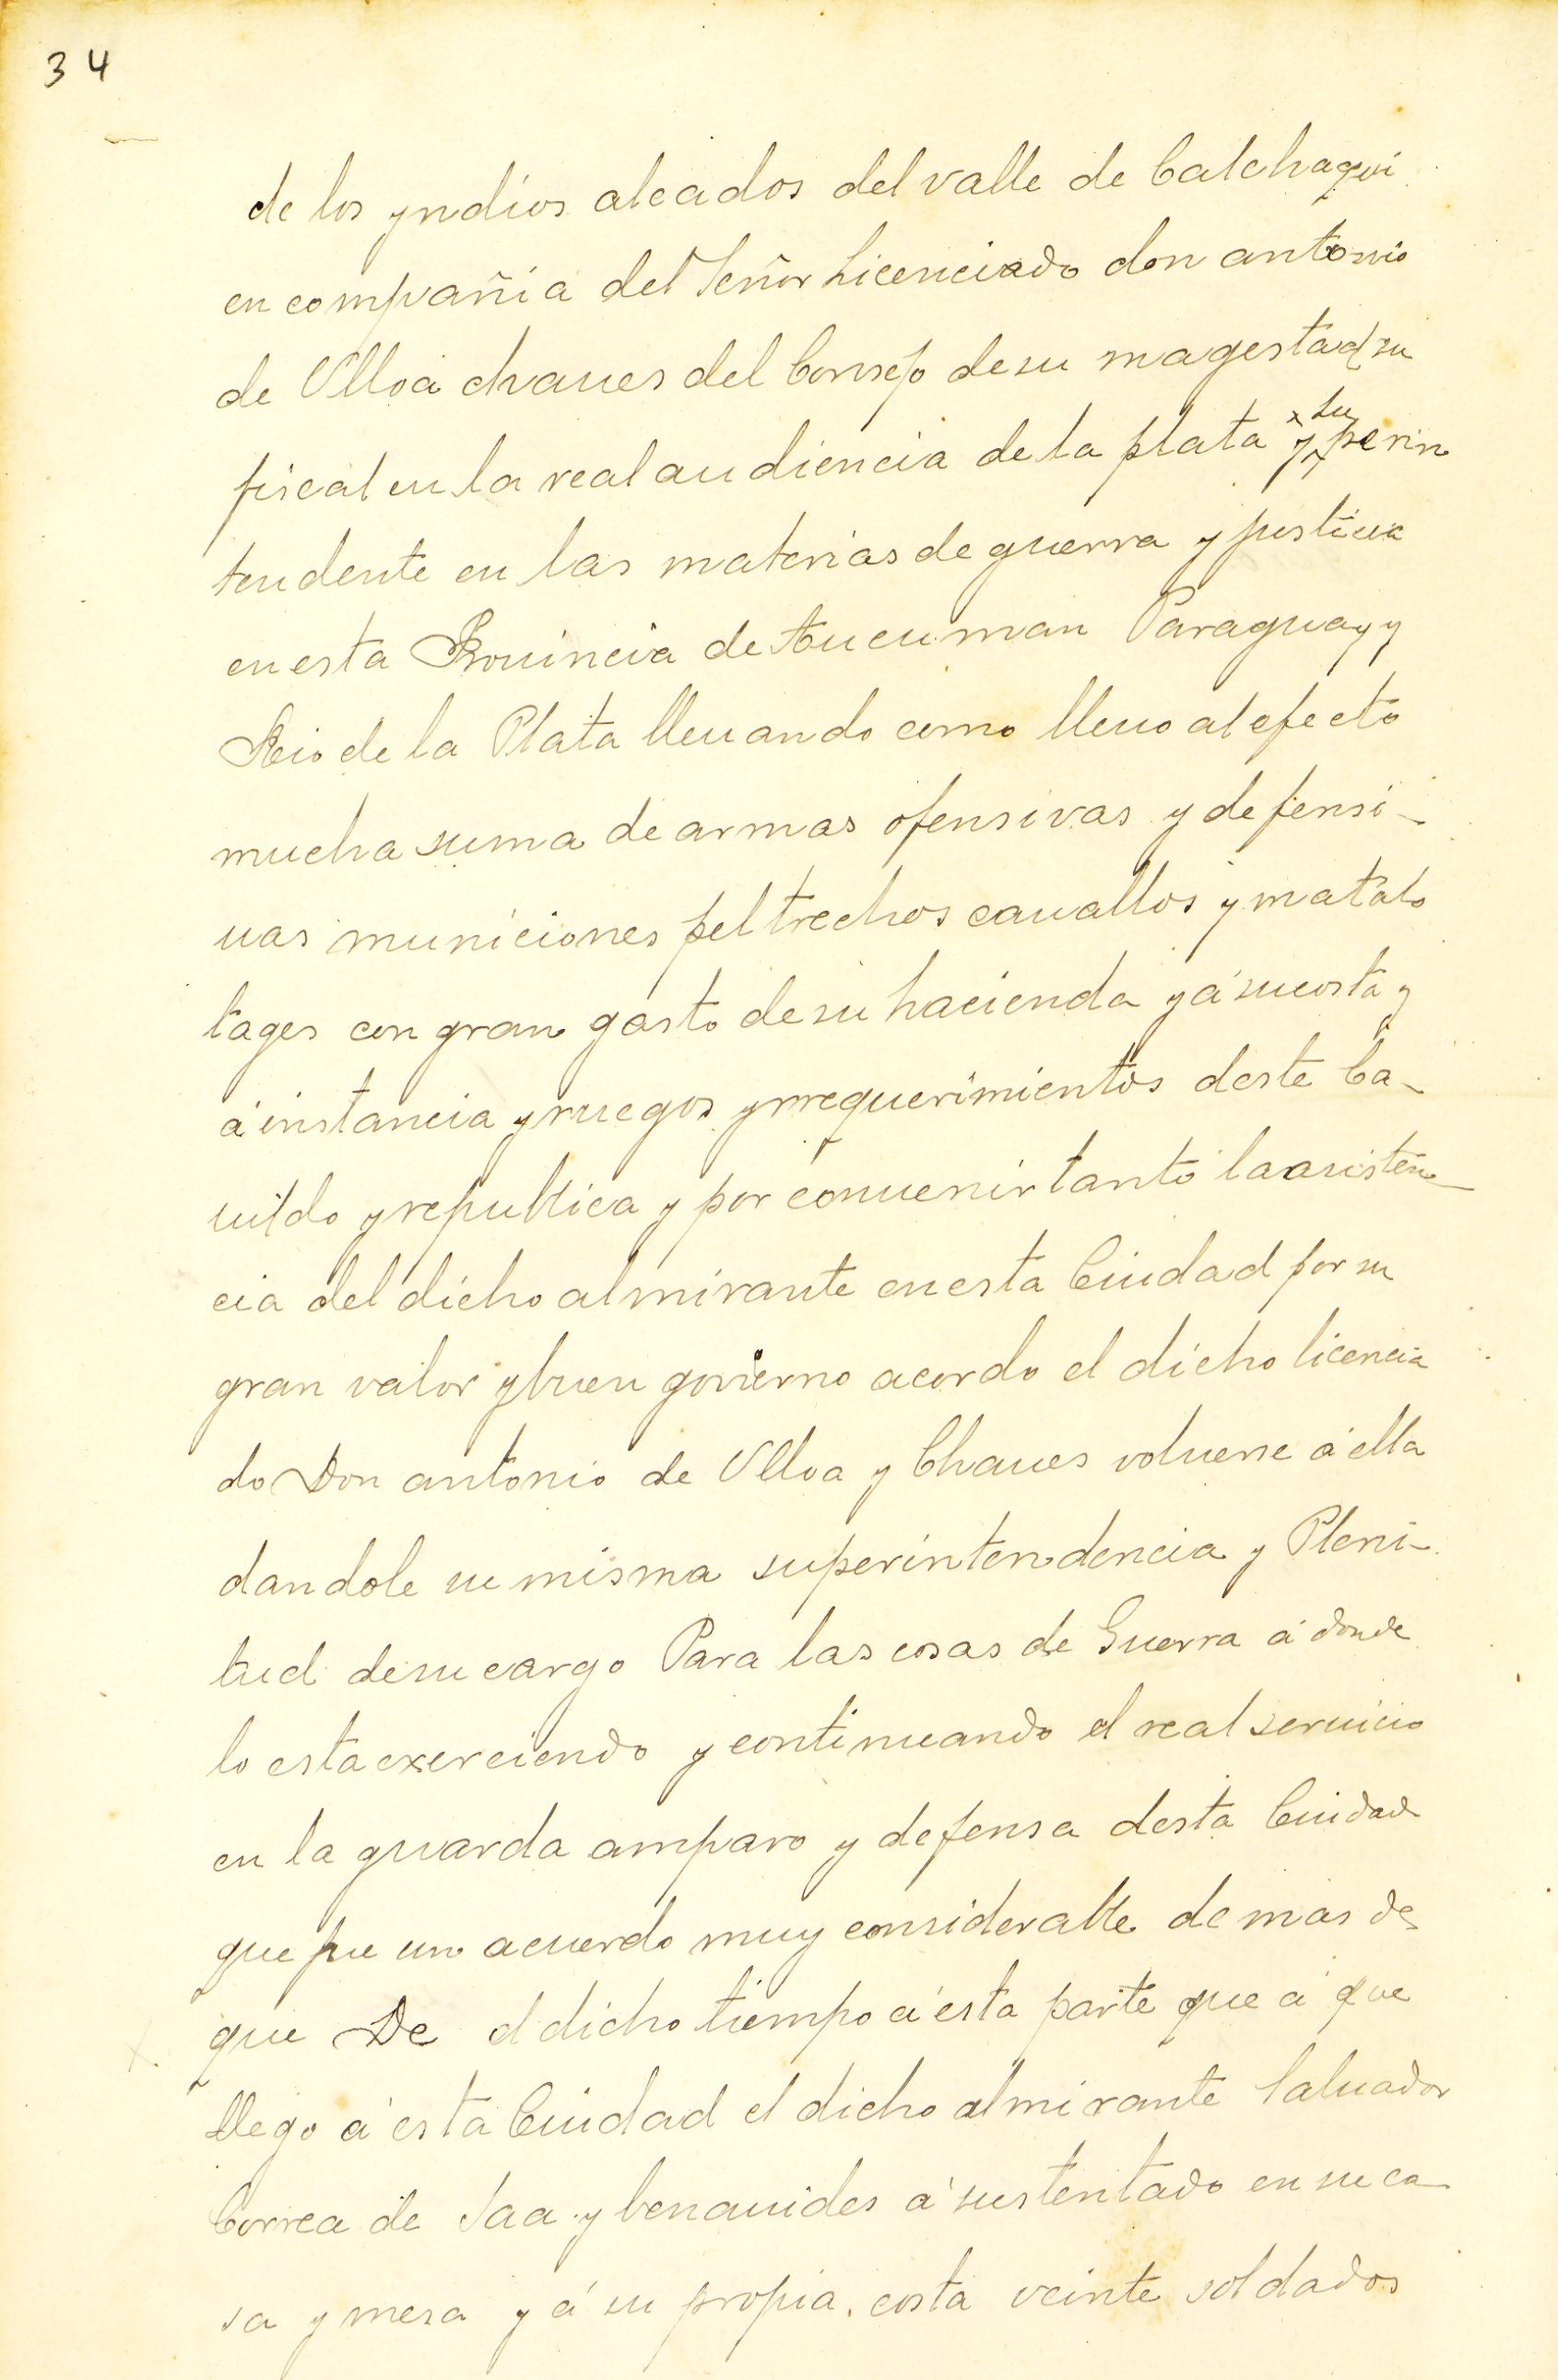 34
de los yndios alcados del valle de Calchaqui
en compañia del Señor Licenciado don antonio
de Ulloa chaues del Consejo de su magestad su
fiscal en la real audiencia de la plata y superin
tendente en las materias de guerra y justicia
en esta Prouincia de tucuman Paraguay y
Rio de la Plata lleuando como lleuo al efecto
mucha suma de armas ofensivas y defensi-
uas municiones peltrechos cauallos y matalo
tages con gran gasto de su hacienda y á su costa y
á instancia y ruegos y rrequerimientos deste Ca-
uildo y republica y por conuenir tanto la asisten-
cia del dicho almirante en esta Ciudad por su
gran valor y buen govierno acordo el dicho licencia
do Don antonio de Ulloa y Chaues voluerse á ella
dandole su misma superintendencia y Pleni-
tud de su cargo Para las cosas de Guerra á donde
lo esta exerciendo y continuando el real seruicio
en la guarda amparo y defensa desta Ciudad
que fue un acuerdo muy considerable demas de
que De el dicho tiempo á esta parte que á que
llego á esta Ciudad el dicho almirante Saluador
Correa de Saa y benauides á sustentado en su ca
sa y mesa y á su propia costa veinte soldados